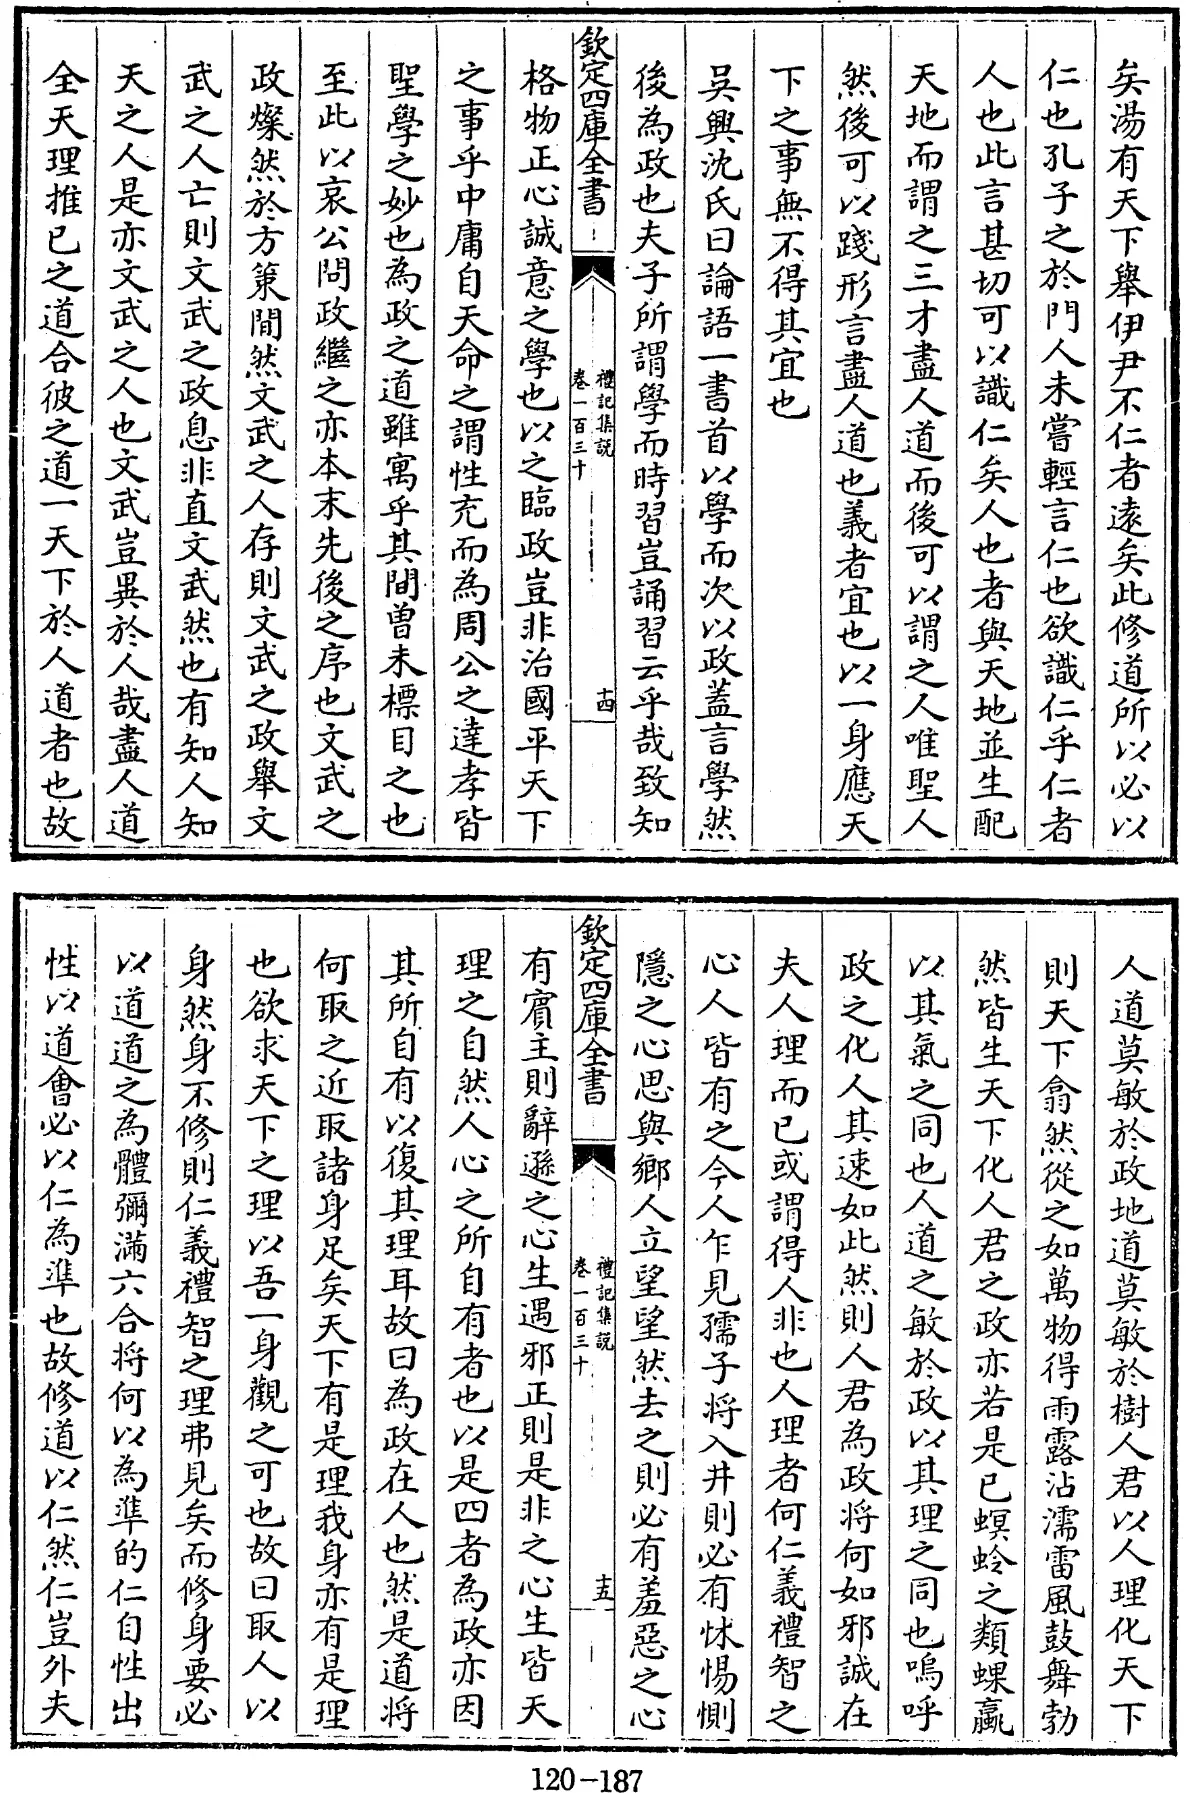 矣湯有天下舉伊尹不仁者逺矣此修道所以必以
仁也孔子之於門人未嘗輕言仁也欲識仁乎仁者
人也此言甚切可以識仁矣人也者與天地並生配
天地而謂之三才盡人道而後可以謂之人唯聖人
然後可以踐形言盡人道也義者宜也以一身應天
下之事無不得其宜也
吳興沈氏曰論語一書首以學而次以政蓋言學然
後為政也夫子所謂學而時習豈誦習云乎哉致知
欽定四庫全書
禮記集説
卷一百三十
十四
格物正心誠意之學也以之臨政豈非治國平天下
之事乎中庸自天命之謂性充而為周公之達孝皆
聖學之妙也為政之道雖寓乎其間曽未標目之也
至此以哀公問政繼之亦本末先後之序也文武之
政燦然於方策間然文武之人存則文武之政舉文
武之人亡則文武之政息非直文武然也有知人知
天之人是亦文武之人也文武豈異於人哉盡人道
全天理推已之道合彼之道一天下於人道者也故
人道莫敏於政地道莫敏於樹人君以人理化天下
則天下翕然從之如萬物得雨露沾濡雷風鼓舞勃
然皆生天下化人君之政亦若是已螟蛉之類蜾蠃
以其氣之同也人道之敏於政以其理之同也嗚呼
政之化人其速如此然則人君為政將何如邪誠在
夫人理而已或謂得人非也人理者何仁義禮智之
心人皆有之今人乍見孺子将入井則必有怵惕惻
隱之心思與鄉人立望望然去之則必有羞惡之心
欽定四庫全書
禮記集説
卷一百三十
十五
有賔主則辭遜之心生遇邪正則是非之心生皆天
理之自然人心之所自有者也以是四者為政亦因
其所自有以復其理耳故曰為政在人也然是道将
何取之近取諸身足矣天下有是理我身亦有是理
也欲求天下之理以吾一身觀之可也故曰取人以
身然身不修則仁義禮智之理弗見矣而修身要必
以道道之為體彌滿六合将何以為準的仁自性出
性以道會必以仁為準也故修道以仁然仁豈外夫
120-187